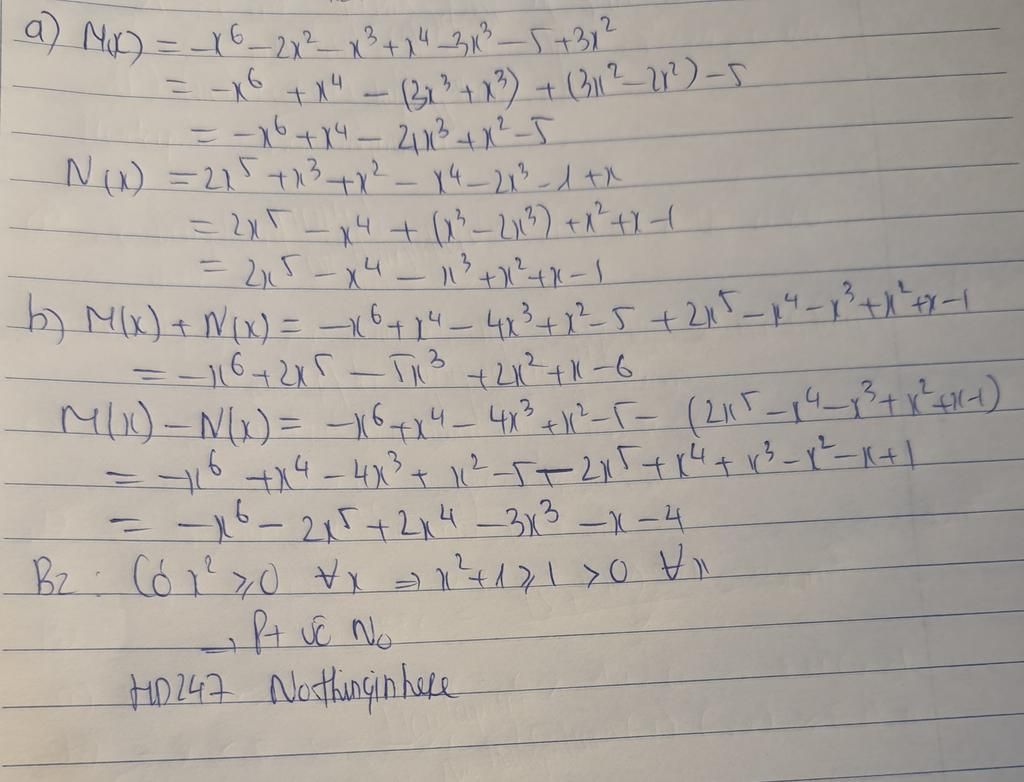 a) M(x) = -x⁶ - 2x² - x³ + x⁴ - 3x³ - 5 + 3x²
= -x⁶ + x⁴ - (3x³ + x³) + (3x² - 2x²) - 5
= -x⁶ + x⁴ - 4x³ + x² - 5
N(x) = 2x⁵ + x³ + x² - x⁴ - 2x³ - 1 + x
= 2x⁵ - x⁴ + (x³ - 2x³) + x² + x - 1
= 2x⁵ - x⁴ - x³ + x² + x - 1
b) M(x) + N(x) = -x⁶ + x⁴ - 4x³ + x² - 5 + 2x⁵ - x⁴ - x³ + x² + x - 1
= -x⁶ + 2x⁵ - 5x³ + 2x² + x - 6
M(x) - N(x) = -x⁶ + x⁴ - 4x³ + x² - 5 - (2x⁵ - x⁴ - x³ + x² + x - 1)
= -x⁶ + x⁴ - 4x³ + x² - 5 - 2x⁵ + x⁴ + x³ - x² - x + 1
= -x⁶ - 2x⁵ + 2x⁴ - 3x³ - x - 4
B2 : Có x² ≥ 0 ∀x ⇒ x² + 1 ≥ 1 > 0 ∀x
→ Pt vô No
HD247 Nothinginhere